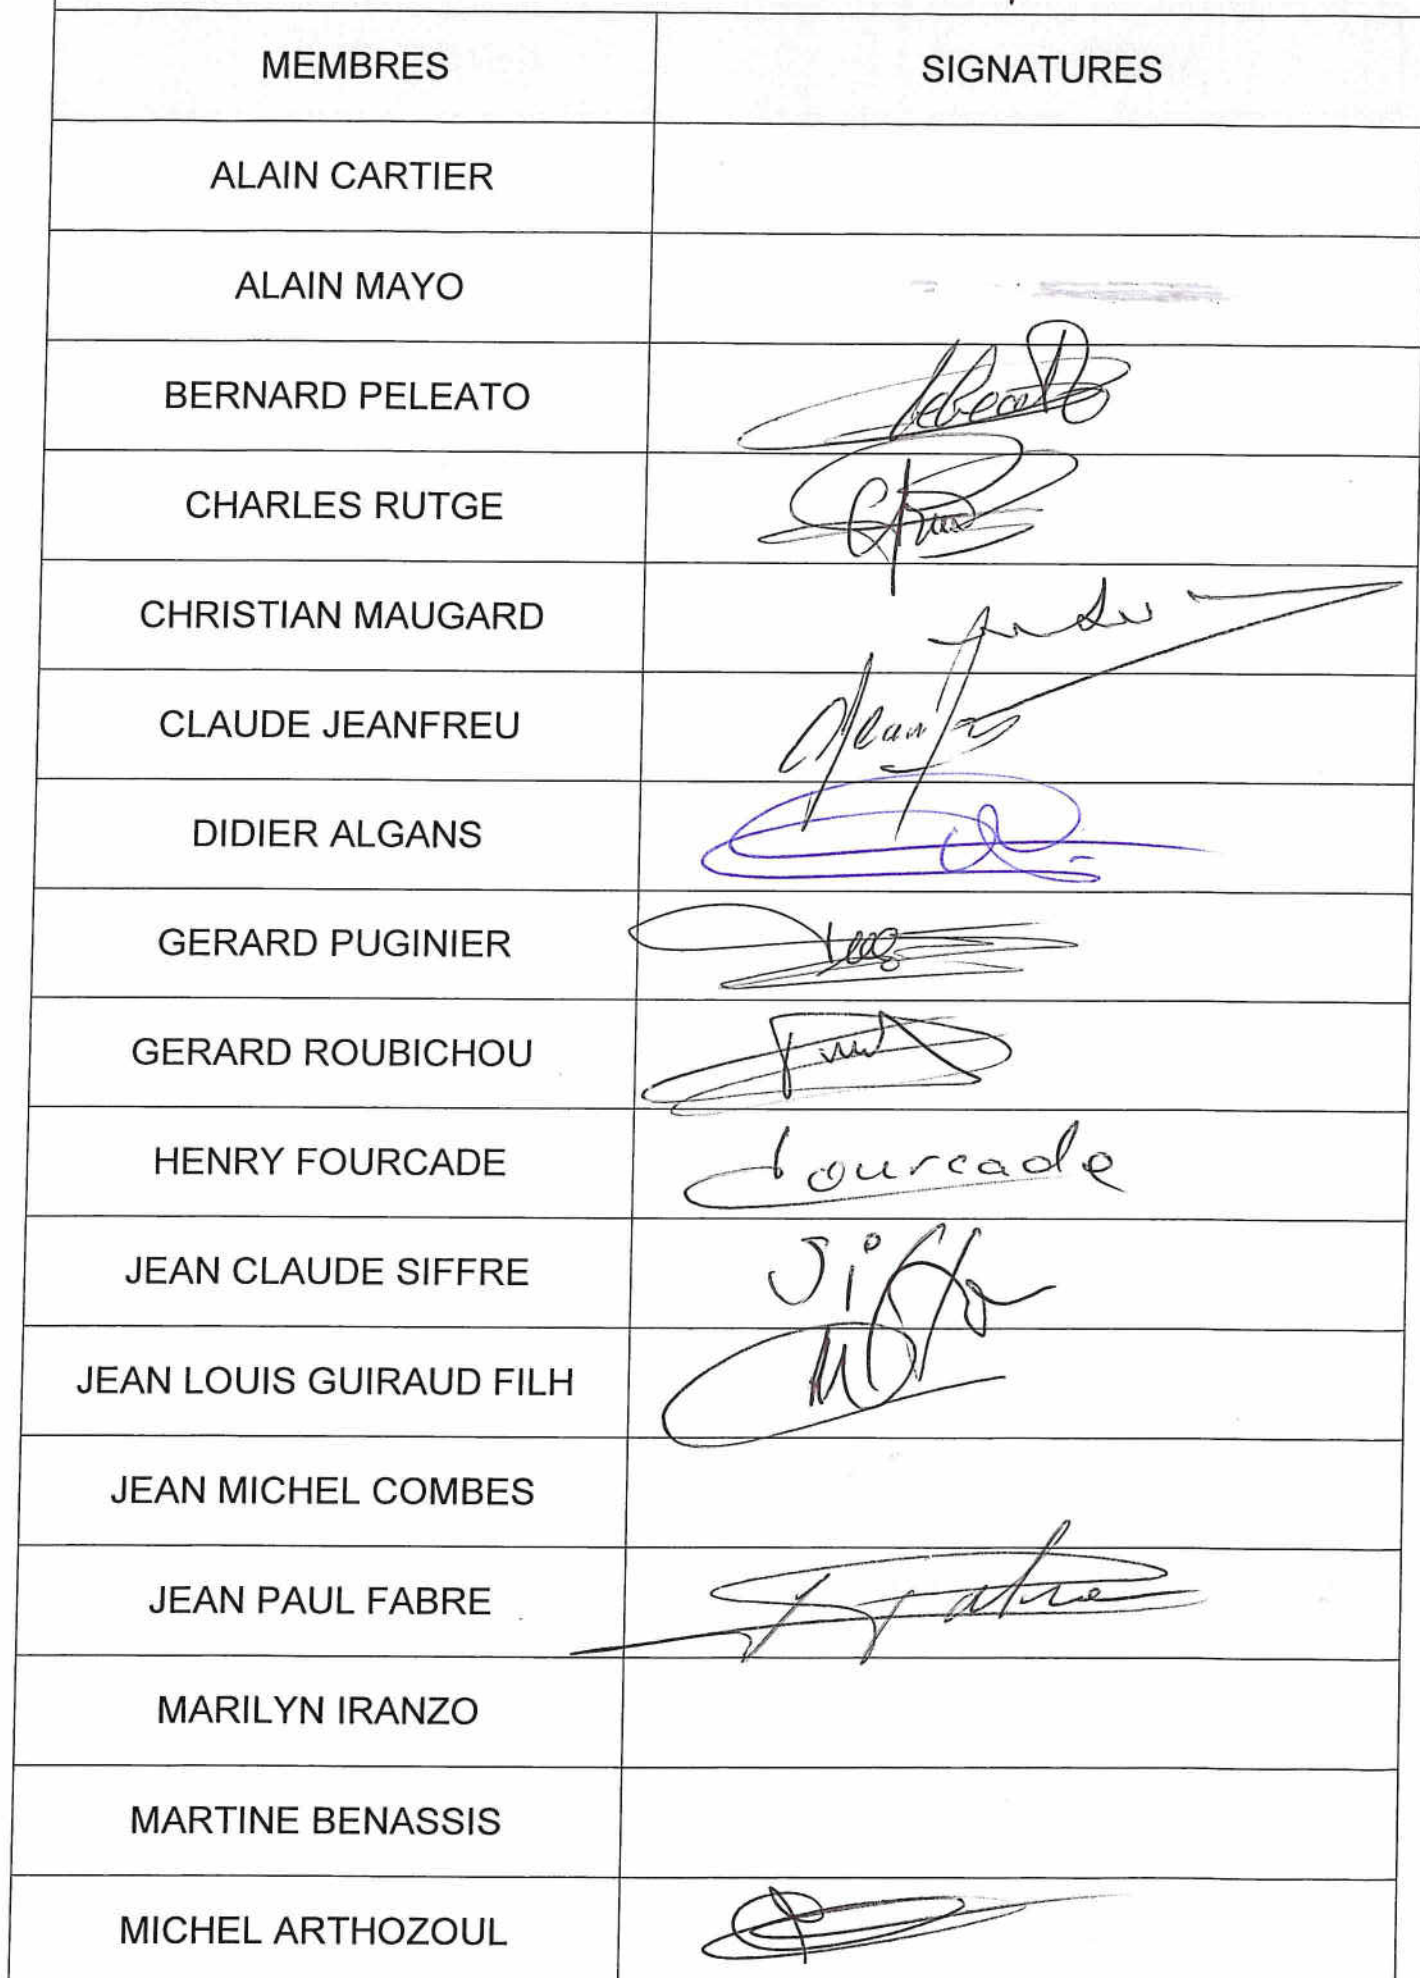 MEMBRES SIGNATURES
ALAIN CARTIER
ALAIN MAYO
BERNARD PELEATO
CHARLES RUTGE
CHRISTIAN MAUGARD
CLAUDE JEANFREU
DIDIER ALGANS
GERARD PUGINIER
GERARD ROUBICHOU
HENRY FOURCADE fourcade
JEAN CLAUDE SIFFRE
JEAN LOUIS GUIRAUD FILH
JEAN MICHEL COMBES
JEAN PAUL FABRE
MARILYN IRANZO
MARTINE BENASSIS
MICHEL ARTHOZOUL